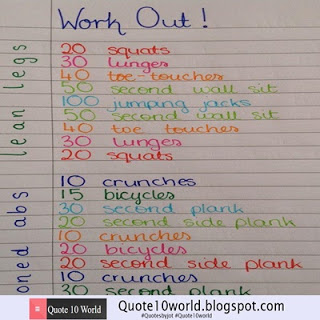 Work Out!
lean legs
20 squats
30 lunges
40 toe-touches
50 second wall sit
100 jumping jacks
50 second wall sit
40 toe touches
30 lunges
20 squats
oned abs
10 crunches
15 bicycles
30 second plank
20 second side plank
10 crunches
20 bicycles
20 second side plank
10 crunches
30 second plank
Quote 10 World
Quote10world.blogspot.com
#Quotesbyjot #Quote10world